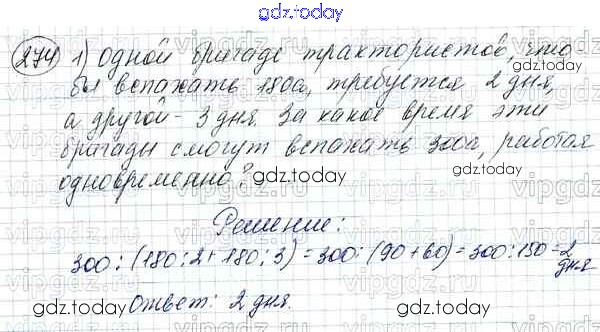 gdz.today
274 1) Одной бригаде трактористов, что
бы вспахать 180а, требуется 2 дня,
а другой - 3 дня. За какое время эти
бригады смогут вспахать 300а, работая
одновременно?
Решение:
300 : (180 : 2 + 180 : 3) = 300 : (90 + 60) = 300 : 150 = 2 дня
Ответ: 2 дня.
gdz.today
gdz.today
gdz.today
gdz.today
gdz.today
gdz.today
vipgdz.ru